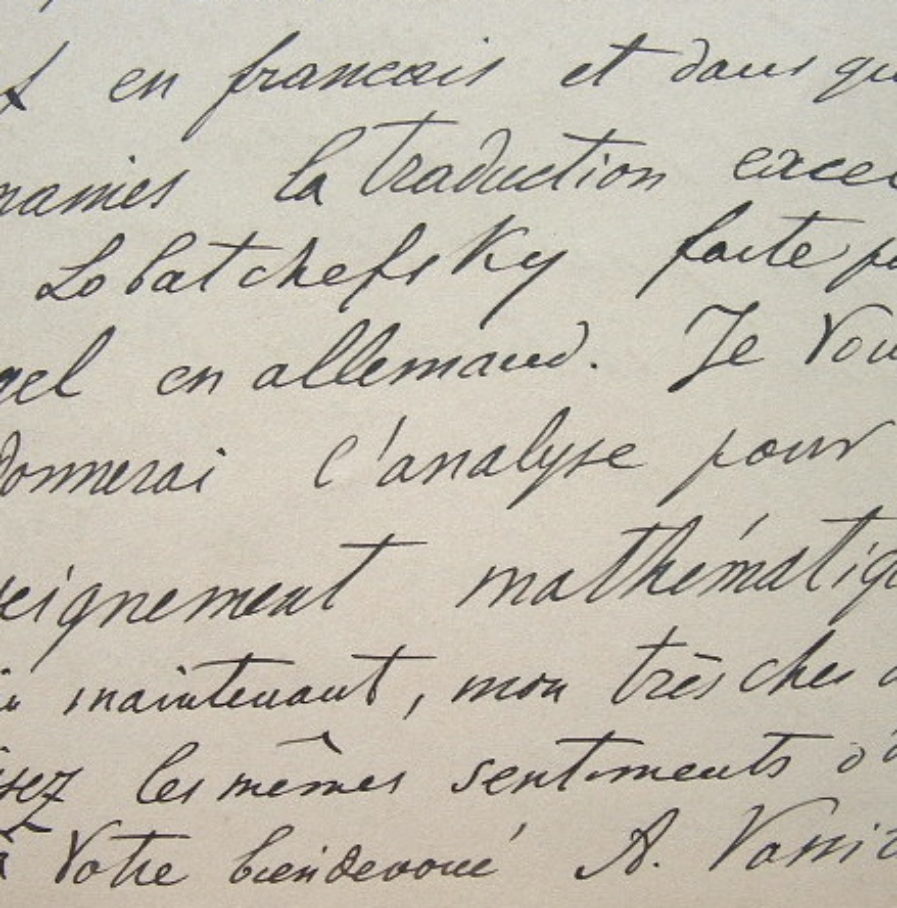 en francais et dans qu
maines la traduction excel
Lobatchefsky faite pa
gel en allemand. Je Vou
donnerai l'analyse pour
seignement mathématiqu
maintenant, mon très cher
les mêmes sentiments d'
à Votre biendevoué A. Vassi